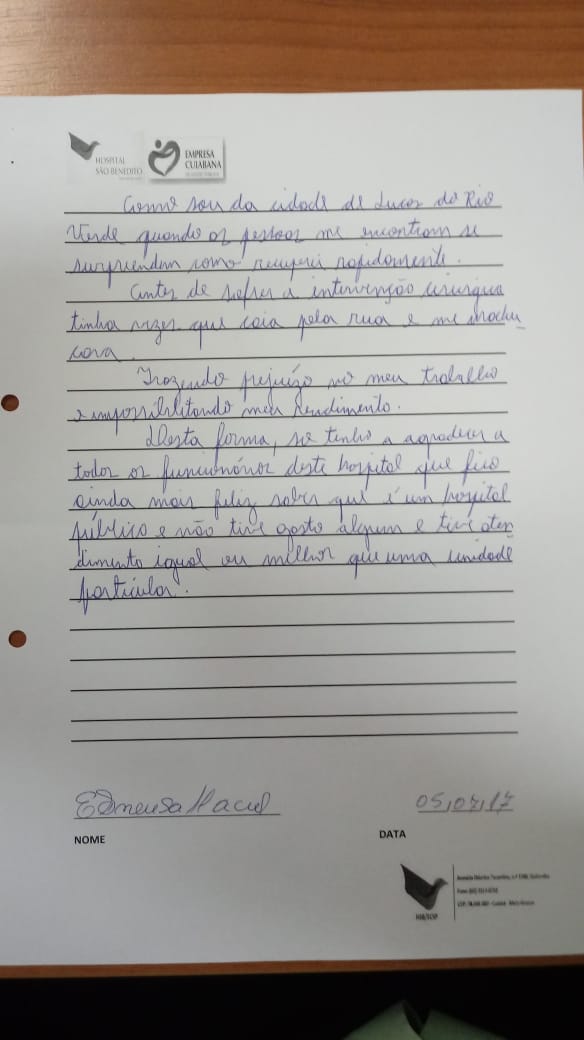 HOSPITAL
SÃO BENEDITO
EMPRESA
CUIABANA
Como sou da cidade de Lucas do Rio
Verde quando as pessoas me encontram se
surpreendem como recuperei rapidamente.
Antes de sofrer a intervenção
tinha vezes que caia pela rua e me machu
cava.
Trazendo prejuízo no meu trabalho
e impossibilitando meu rendimento.
Desta forma, só tenho a agradecer a
todos os funcionários deste hospital que fico
ainda mais feliz saber que é um hospital
público e não tive gasto algum e tive aten
dimento igual ou melhor que uma unidade
particular.
Edneusa Maciel
05,07,17
NOME
DATA